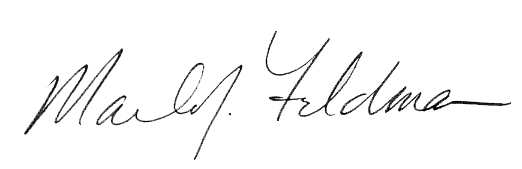 Mark J. Feldman